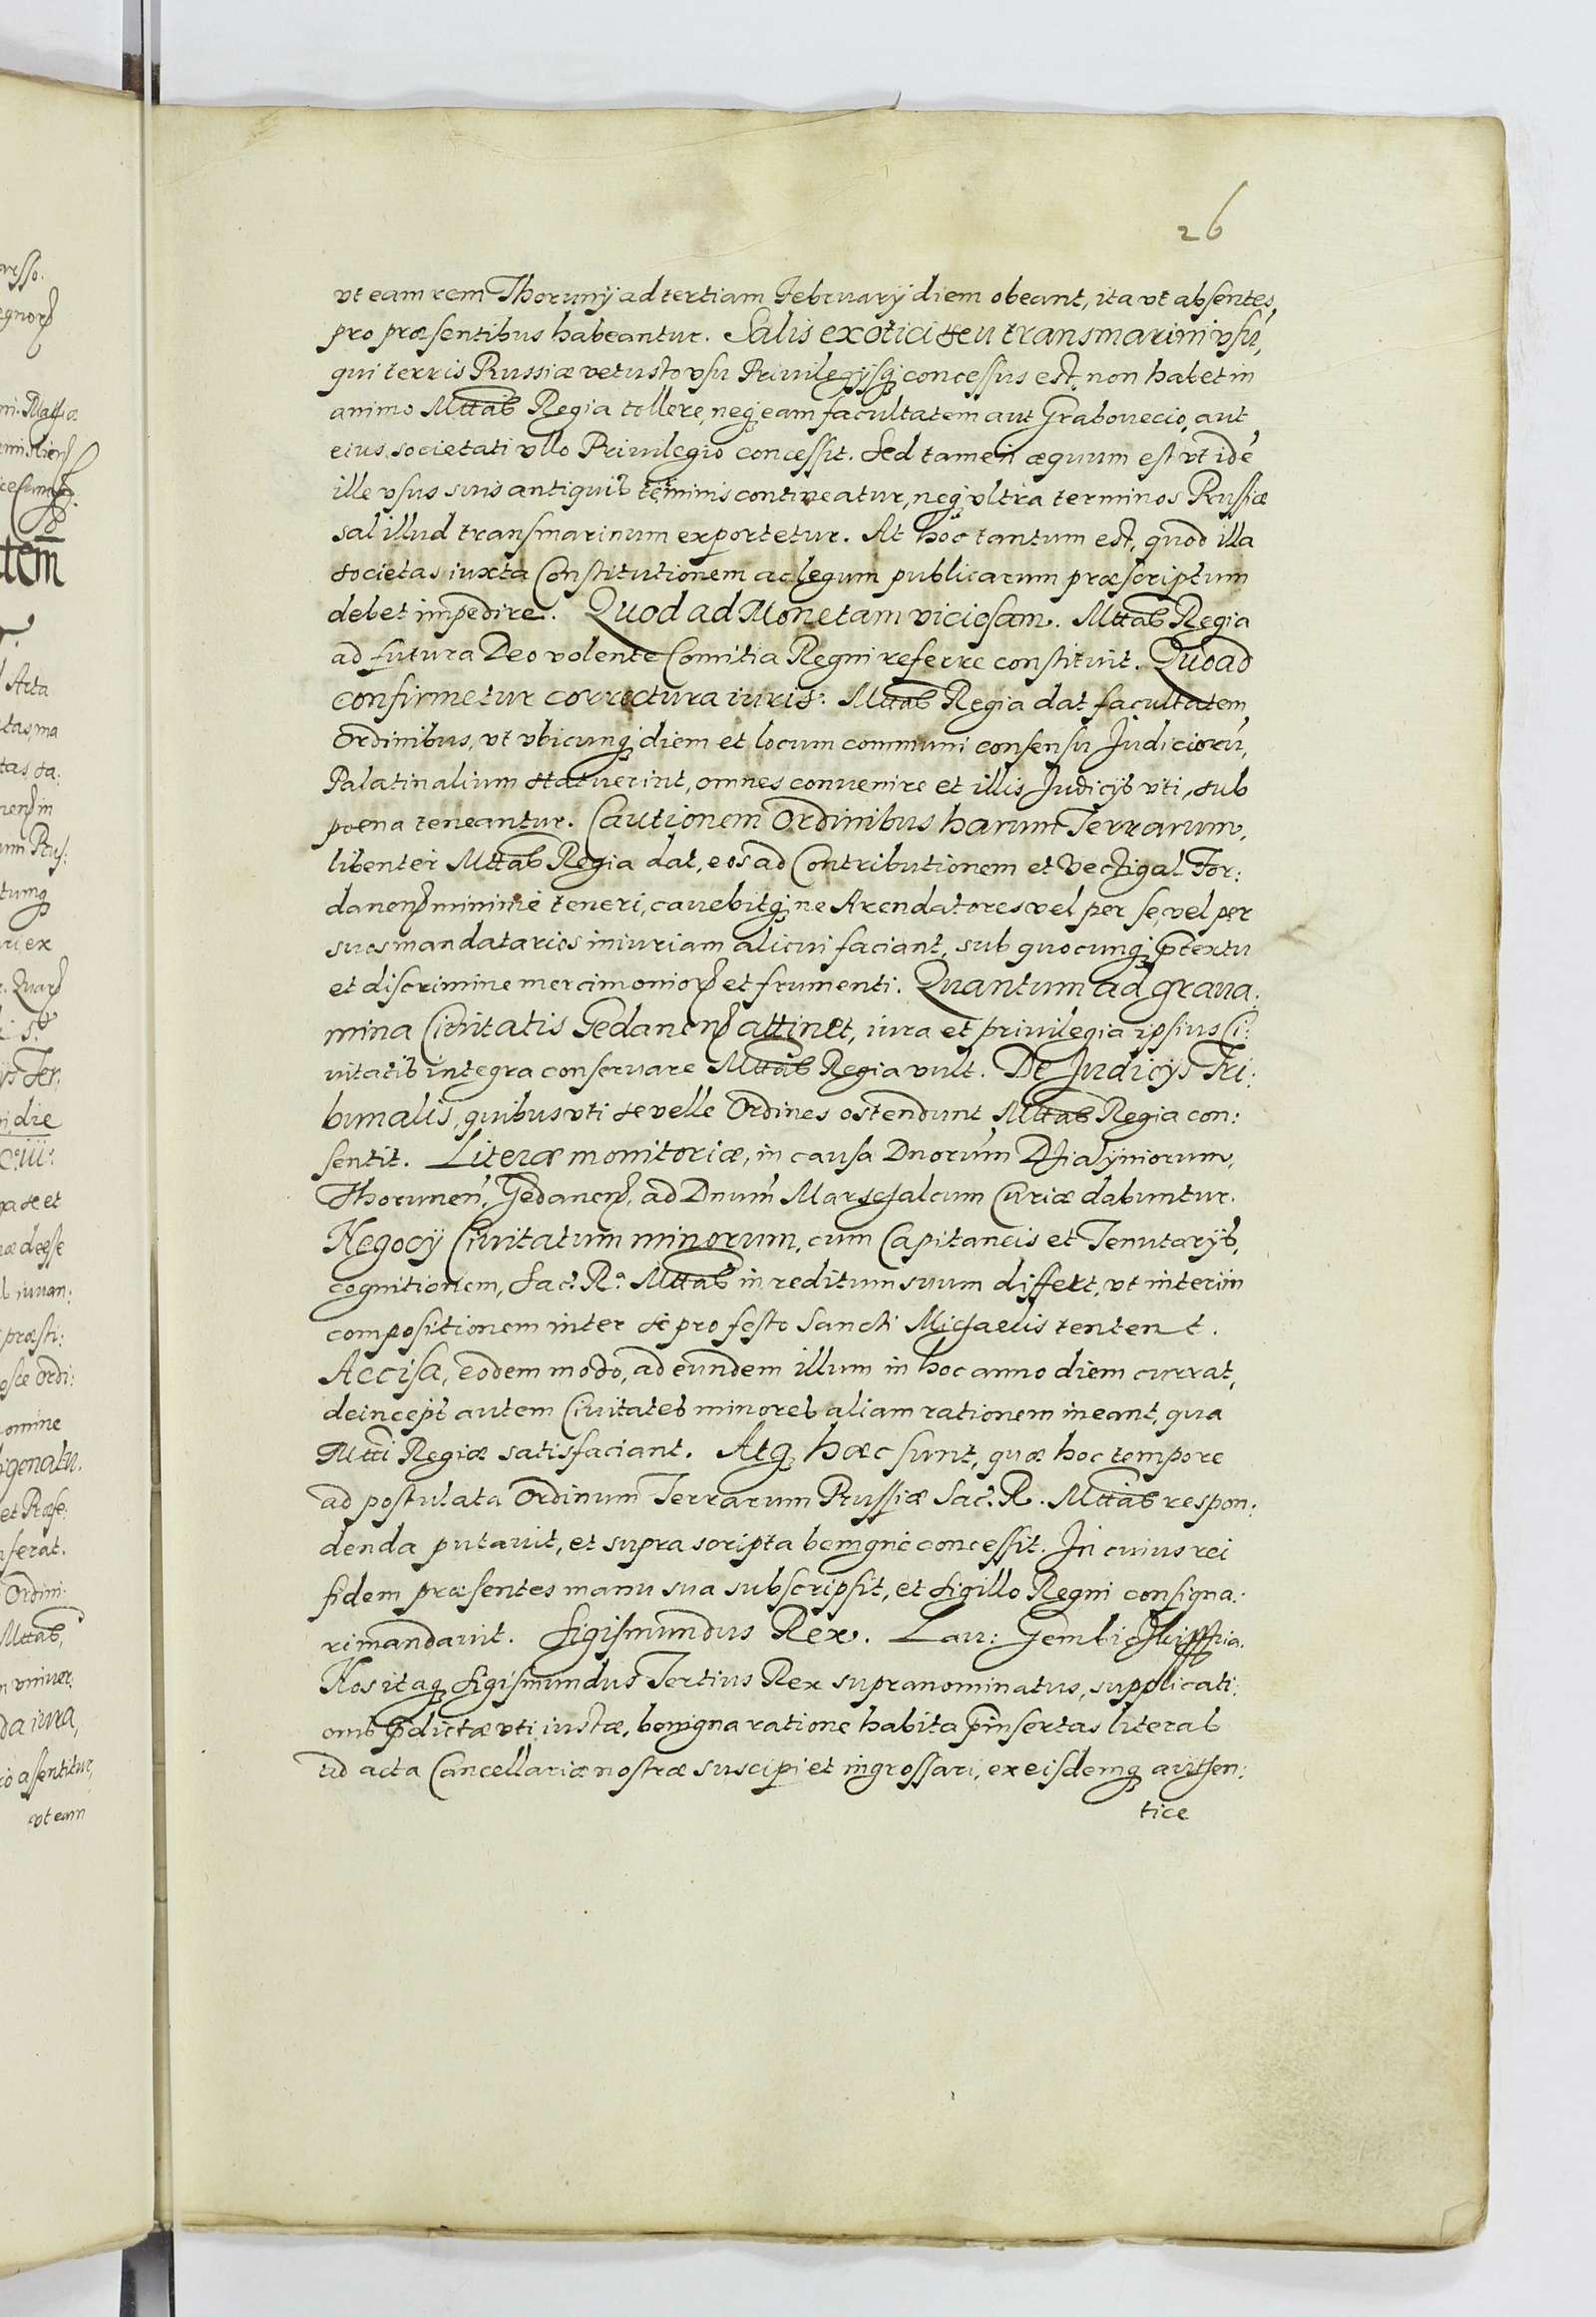 26
vt eam rem Thorunÿ ad tertiam Februarÿ diem obeant, ita vt absentes,
pro præsentibus habeantur. Salis exotici seu transmarini vsu,
qui terris Prussiæ vetusto vsu Priuilegÿsq; concessus est, non habet in
animo Mttas Regia tollere, neq; eam facultatem aut Grabouecio, aut
eius societati vllo Priuilegio concessit. Sed tamen æquum est vt idē
ille vsus suis antiquis teminis contineatur, neq; vltra terminos Prussiæ
sal illud transmarinum exportetur. At hoc tantum est, quod illa
societas iuxta Constitutionem ac legum publicarum præscriptum
debet impedire. Quod ad Monetam viciosam. Mttas Regia
ad futura Deo volente Comitia Regni referre constituit. Quo ad
confirmetur correctura iuris: Mttas Regia dat facultatem
Ordinibus, vt vbicunq; diem et locum communi consensu Judiciorū,
Palatinalium statuerint, omnes conuenire et illis Judicÿs vti, sub
poena teneantur. Cautionem Ordinibus harum Terrarum,
libenter Mttas Regia dat, eos ad Contributionem et Vectigal For:
danens minime teneri, cauebitq; ne Arendatores vel per se, vel per
suos mandatarios iniuriam alicui faciant, sub quocunq; ptextu
et discrimine mercimonior et frumenti. Quantum ad graua:
mina Ciuitatis Gedanens attinet, iura et priuilegia ipsius Ci:
uitatis integra conseruare Mttas Regia vult. De Judicÿs Tri:
bunalis, quibus vti se velle Ordines ostendunt Mttas Regia con:
sentit. Literæ monitoriæ, in causa Dnorum Dzialÿniorum,
Thorunen, Gedanens, ad Dnum Marschalcum Curiæ dabuntur.
Negocÿ Ciuitatum minorum, cum Capitaneis et Tenutarÿs,
cognitionem, Sac: R: Mttas in reditum suum differt, vt interim
compositionem inter se pro festo Sancti Michaelis tentent.
Accisa, eodem modo, ad eundem illum in hoc anno diem currat,
deinceps autem Ciuitates minores aliam rationem ineant, qua
Mtti Regiæ satisfaciant. Atq; hæc sunt, quæ hoc tempore
ad postulata Ordinum Terrarum Prussiæ Sac: R. Mttas respon:
denda putauit, et supra scripta benigne concessit. In cuius rei
fidem præsentes manu sua subscripsit, et sigillo Regni consigna:
ri mandauit. Sigismundus Rex. Lau: Gembic
Nos itaq; Sigismundus Tertius Rex supranominatus, supplicati:
oni pdictæ vti iustæ, benigna ratione habita pinsertas literas
ad acta Cancellariæ nostræ suscipi et ingrossari, ex eisdemq; authen:
tice